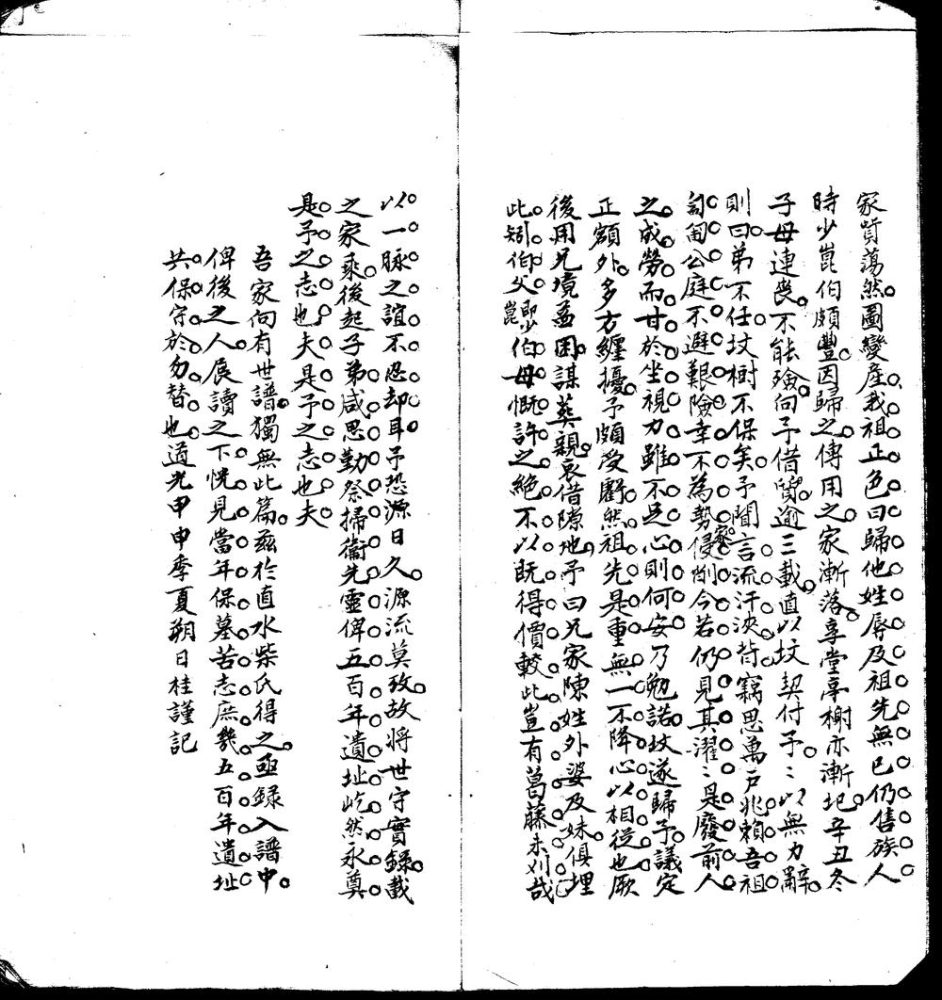 家貲蕩然圖變產我祖正色曰歸他姓辱及祖先無已仍售族人
時少崑伯頗豐因歸之傳用之家漸落享堂享榭亦漸圮辛丑冬
子母連喪不能殮向予借貸逾三載直以坟契付予〻以無力辭
則曰弟不任坟樹不保矣予聞言流汗浹背竊思萬戶兆賴吾祖
匍匐公庭不避艱險幸不為勢豪侵削今若仍見其濯〻是廢前人
之成勞而甘於坐視力雖不足心則何安乃勉諾坟遂歸予議定
正額外多方纏擾予頗受虧然祖先是重無一不降心以相從也厥
後用兄境益困謀葬親哀借隙地予曰兄家陳姓外婆及妹俱埋
此矧伯父即少崑伯母慨許之絕不以既得價較此豈有葛藤未刈哉
以一脉之誼不忍却耳予恐源日久源流莫攷故將世守實錄載
之家乘後起子弟咸思勤祭掃衞先靈俾五百年遺址屹然永奠
是予之志也夫是予之志也夫
吾家向有世譜獨無此篇茲於直水柴氏得之亟錄入譜中
俾後之人展讀之下恍見當年保墓苦志庶幾五百年遺址
共保守於勿替也道光甲申季夏朔日桂謹記